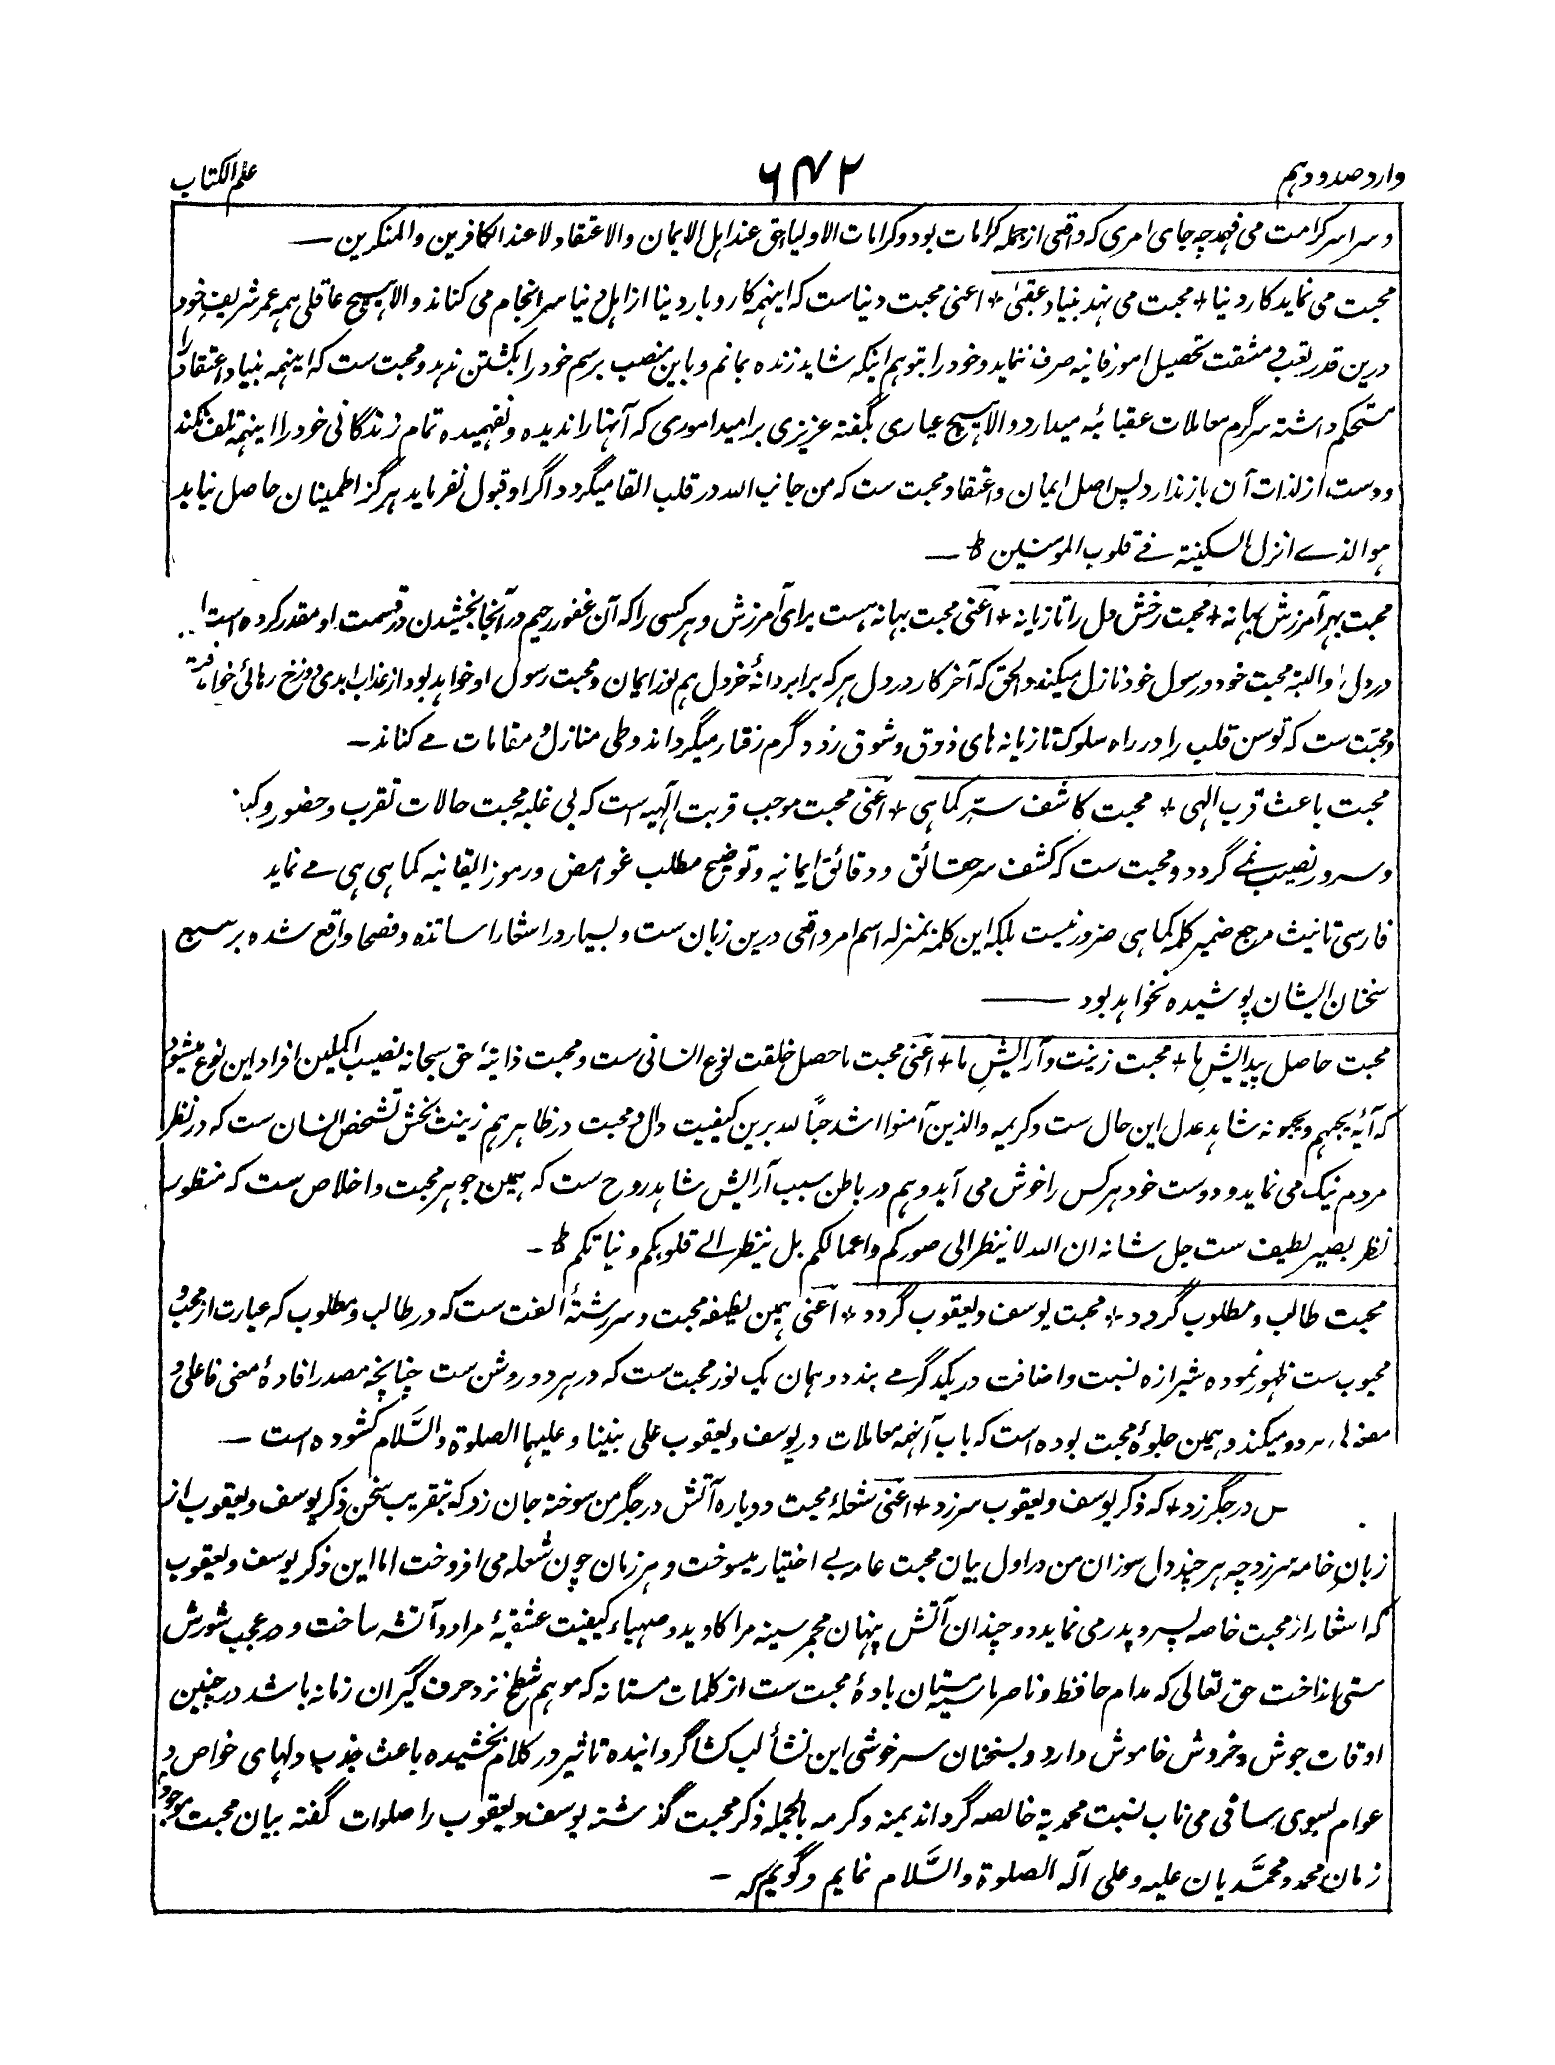 وارد صد و دهم
۶۴۲
علم الکتاب
و سراسر کرامت می فهمد چه جای امری که واقعی از جمله کرامات بود و کرامات الاولیا حق عند اهل الایمان والاعتقاد لا عند الکافرین والمنکرین —
محبت می نماید کار دنیا + محبت می نهد بنیاد عقبیٰ + اعنی محبت دنیاست که اینهمه کار و بار دنیا از اهل دنیا سرانجام می کناند و الا هیچ عاقلی همه عمر شریف خود را
درین قدر تعب و مشقت تحصیل امور فانیه صرف ننماید و خود را بتوهم اینکه شاید زنده بمانم و باین منصب برسم خود را بکشتن ندهد و محبت ست که اینهمه بنیاد اعتقاد را
مستحکم داشته سرگرم معاملات عقبائیه میدارد و الا هیچ عیاری بگفته عزیزی بر امید اموری که آنها را ندیده و نفهمیده تمام زندگانی خود را اینهمه تلف نکند
و دست از لذات آن باز ندارد پس اصل ایمان و اعتقاد محبت ست که من جانب الله در قلب القا میگردد و اگر او قبول نفرماید هرگز اطمینان حاصل نیاید
هو الذے انزل السکینة فے قلوب المومنین ط —
محبت بهر آمرزش بهانه + محبت رخش دل را تازیانه + اعنی محبت بهانه هست برای آمرزش و هر کسی را که آن غفور رحیم در آنجا بخشیدن در قسمت او مقدر کرده است
در دل او البته محبت خود و رسول خود نازل میکند و الحق که آخر کار در دل هر که برابر دانهٔ خردل هم نور ایمان و محبت رسول او خواهد بود از عذاب ابدی دوزخ رهائی خواهد یافت
و محبت ست که توسن قلب را در راه سلوک تازیانه های ذوق و شوق زد و گرم رفتار میگرداند و طی منازل و مقامات مے کناند —
محبت باعث قرب الهی + محبت کاشف سر کماهی + اعنی محبت موجب قربت الٓهیه است که بی غلبه محبت حالات تقرب و حضور و
و سرور نصیب نمے گردد و محبت ست که کشف سر حقائق و دقائق ایمانیه و توضیح مطلب غوامض و رموز ایقانیه کما هی هی مے نماید
فارسی تانیث مرجع ضمیر کلمه کماهی ضرور نیست بلکه این کلمه بمنزله اسم امر واقعی درین زبان ست و بسیار در اشعار اساتذه و فصحا واقع شده بر سبع
سخنان ایشان پوشیده نخواهد بود —
محبت حاصل پیدایش ما + محبت زینت و آرایش ما + اعنی محبت ماحصل خلقت نوع انسانی ست و محبت ذاتیهٔ حق سبحانه نصیب اکملین افراد این نوع میشود
که آیهٔ یحبهم و یحبونه شاهد عدل این حال ست و کریمه والذین آمنوا اشد حبًا لله برین کیفیت دال و محبت در ظاهر هم زینت بخش تشخص انسان ست که در نظر
مردم نیک می نماید و دوست خود هر کس را خوش می آید و هم در باطن سبب آرایش شاهد روح ست که همین جوهر محبت و اخلاص ست که منظور
نظر بصیر لطیف ست جل شانه ان الله لا ینظر الی صورکم و اعمالکم بل ینظر الے قلوبکم و نیاتکم ط —
محبت طالب و مطلوب گردد + محبت یوسف و یعقوب گردد + اعنی همین لطیفه محبت و سررشتهٔ الفت ست که در طالب و مطلوب که عبارت از محب و
محبوب ست ظهور نموده شیرازه نسبت و اضافت در یکدگر مے بندد و همان یک نور محبت ست که در هر دو روشن ست چنانچه مصدر افادهٔ معنی فاعلی و
هر دو میکند و همین جلوهٔ محبت بوده است که باب آنهمه معاملات در یوسف و یعقوب علی نبینا و علیهما الصلوة والسَّلام کشوده است —
در جگر زد + که ذکر یوسف و یعقوب سرزد + اعنی شعلهٔ محبت دوباره آتش در جگر من سوخته جان زد که بتقریب سخن ذکر یوسف و یعقوب از
زبان خامه سرزد چه هر چند دل سوزان من در اول بیان محبت عامه بے اختیار میسوخت و هر زمان چون شعله می افروخت اما این ذکر یوسف و یعقوب
که اشعار از محبت خاصه پسر و پدر می نماید دو چندان آتش پنهان مجمر سینه مرا کاوید و صهباء کیفیت عشقیهٔ مرا دو آتشه ساخت و در عجب شورش
مستی انداخت حق تعالی که مدام حافظ و ناصر ما سیه مستان بادهٔ محبت ست از کلمات مستانه که موهم شطح نزد حرف گیران زمانه باشد در چنین
اوقات جوش و خروش خاموش دارد و بسخنان سرخوشی این نشأ لب کشا گردانیده تاثیر در کلام بخشیده باعث جذب دلهای خواص و
عوام بسوی ساقی می ناب نسبت محمدیة خالصه گرداند بمنه و کرمه بالجمله ذکر محبت گذشته یوسف و یعقوب را صلوات گفته بیان محبت موجود
زمان محمد و محمدیان علیه و علی آله الصلوة والسَّلام نمایم و گویم که —